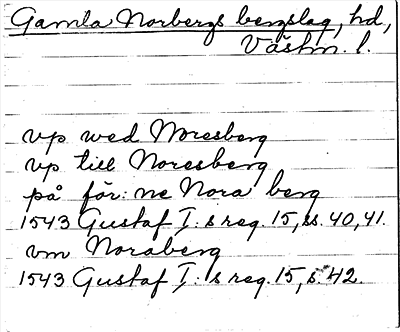 Gamla Norbergs bergslag, hd,
Västm. l.
vp wed Noresberg
vp till Noresberg
på för: ne Nora berg
1543 Gustaf I: s reg. 15, ss. 40, 41.
vm Noraberg
1543 Gustaf I: s reg. 15, s. 42.